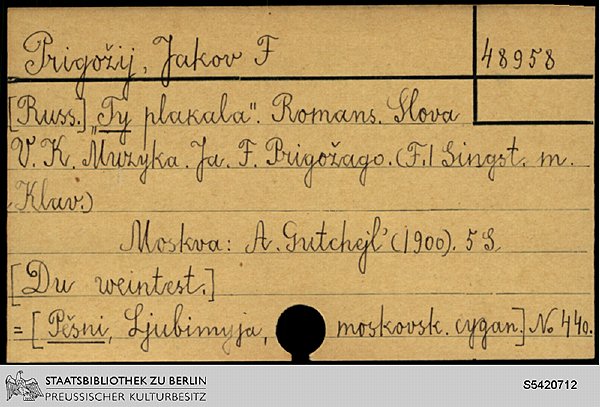 Prigožij, Jakov F
48958
[Russ.] „Ty plakala". Romans. Slova
V. K. Muzyka. Ja. F. Prigožago. (F. 1 Singst. m.
Klav.)
Moskva: A. Gutchejl' (1900). 5 S.
[Du weintest.]
= [Pěsni, Ljubimyja, moskovsk. cygan.] No 440.
STAATSBIBLIOTHEK ZU BERLIN
PREUSSISCHER KULTURBESITZ
S5420712